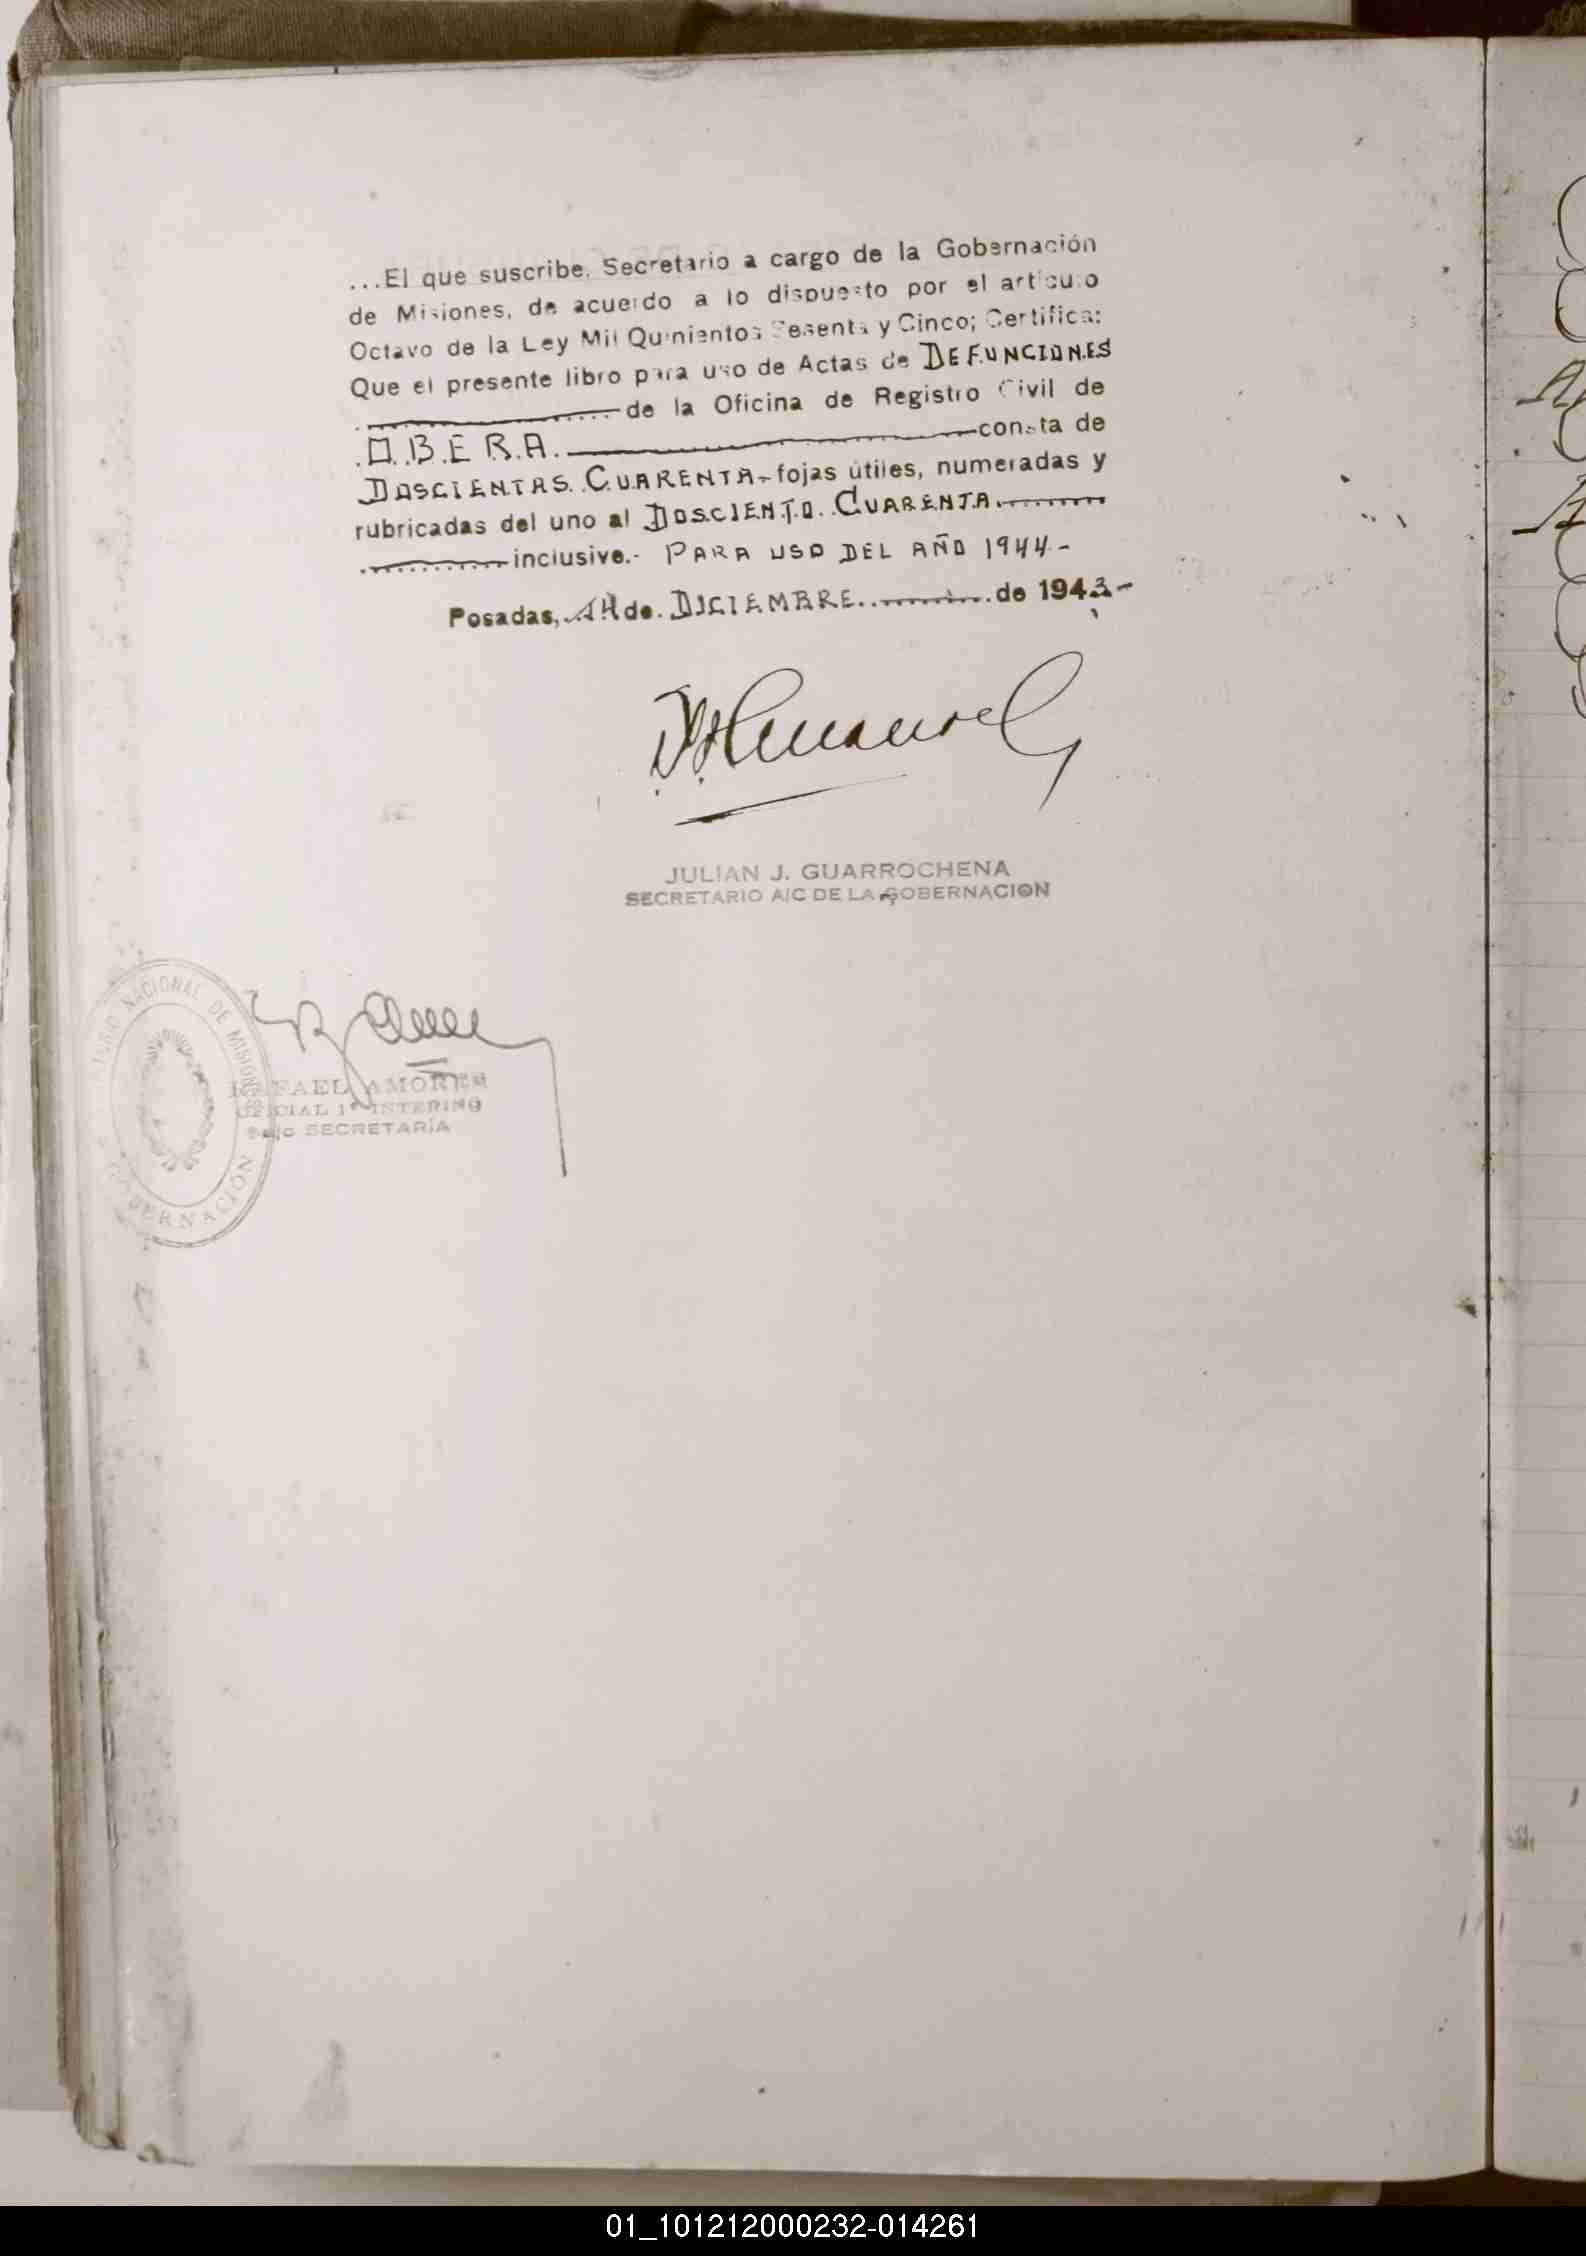 ...El que suscribe, Secretario a cargo de la Gobernación
de Misiones, de acuerdo a lo dispuesto por el artículo
Octavo de la Ley Mil Quinientos Sesenta y Cinco; Certifica:
Que el presente libro para uso de Actas de DEFUNCIONES
de la Oficina de Registro Civil de
OBERA. consta de
DOSCIENTAS CUARENTA- fojas útiles, numeradas y
rubricadas del uno al DOSCIENTO CUARENTA
inclusive.- PARA USO DEL AÑO 1944-
Posadas, 14 de DICIEMBRE de 1943-
JULIAN J. GUARROCHENA
SECRETARIO A/C DE LA GOBERNACION
NACIONAL DE MISIONES
GOBERNACIÓN
RAFAEL AMORES
OFICIAL 1º INTERINO
SECRETARÍA
01_101212000232-014261